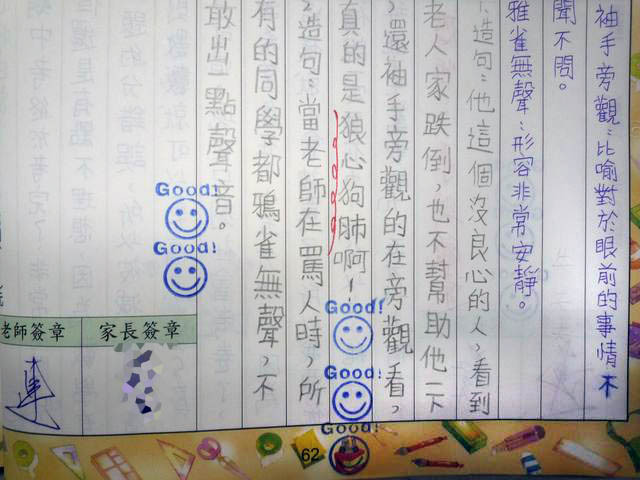 袖手旁觀：比喻對於眼前的事情不
聞不問。
雅雀無聲：形容非常安靜。
造句：他這個沒良心的人，看到
老人家跌倒，也不幫助他一下
，還袖手旁觀的在旁觀看，
真的是狼心狗肺啊！
造句：當老師在罵人時，所
有的同學都鴉雀無聲，不
敢出一點聲音。
Good!
Good!
Good!
Good!
Good!
老師簽章
家長簽章
62